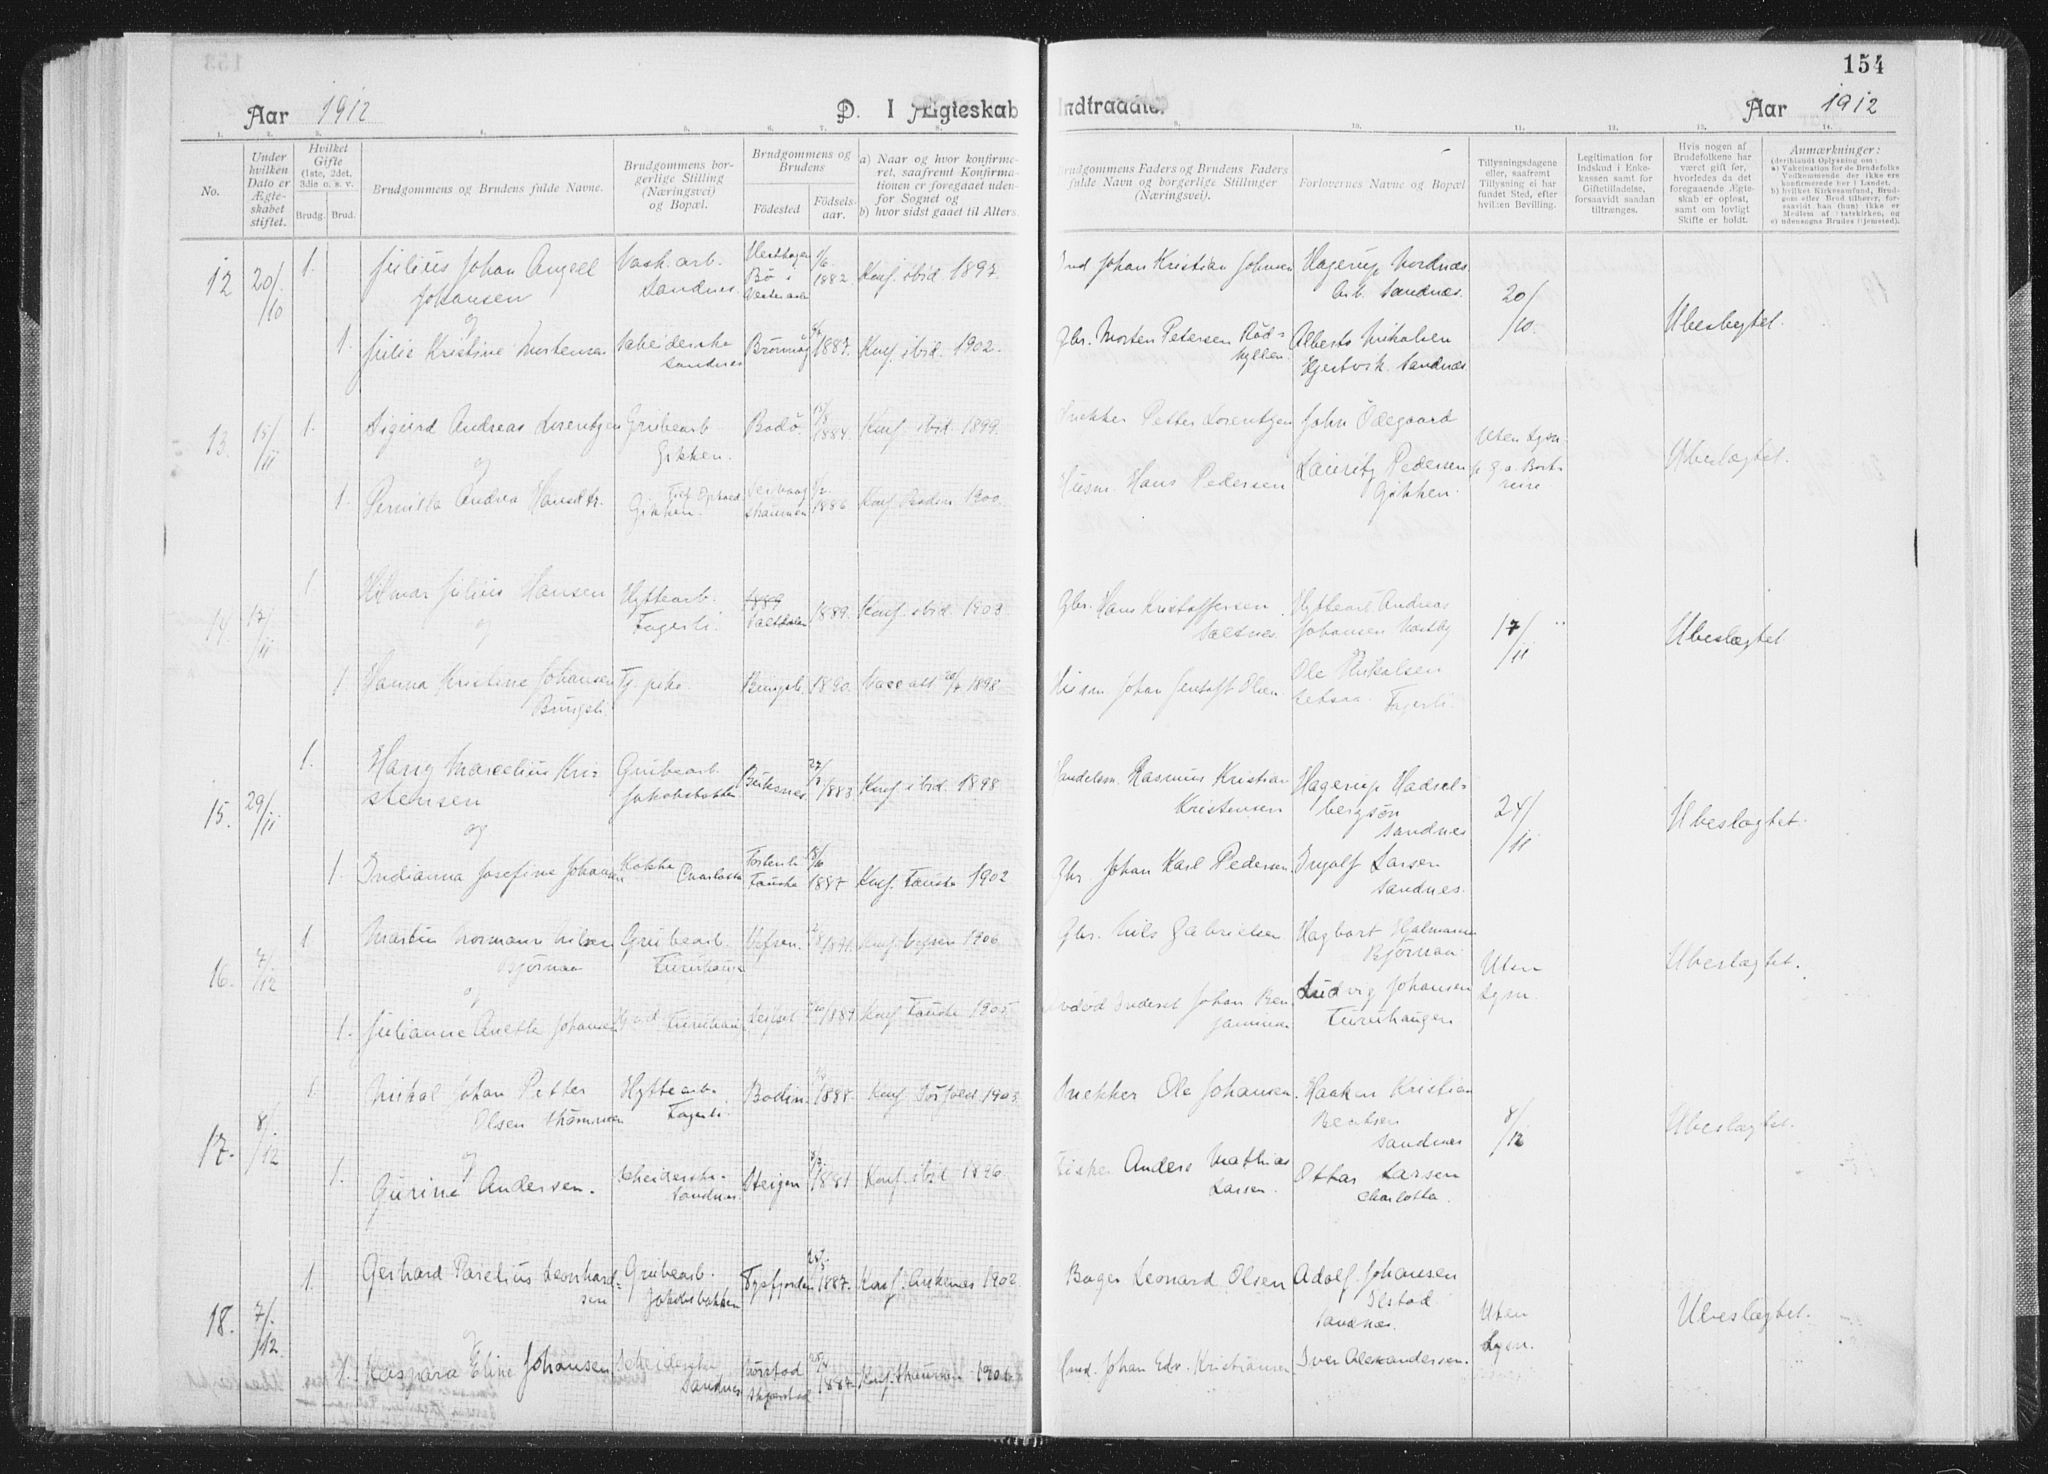 154
Aar 1912
D. I Ægteskab Indtraadte.
Aar 1912
1. 2. 3. 4. 5. 6. 7. 8. 9. 10. 11. 12. 13. 14.
No.
Under hvilken Dato er Ægteskabet stiftet.
Hvilket Gifte (1ste, 2det, 3die o. s. v.
Brudg. Brud.
Brudgommens og Brudens fulde Navne.
Brudgommens borgerlige Stilling (Næringsvei) og Bopæl.
Brudgommens og Brudens
Födested
Födselsaar.
a) Naar og hvor konfirmeret, saafremt Konfirmationen er foregaaet udenfor Sognet og
b) hvor sidst gaaet til Alters.
Brudgommens Faders og Brudens Faders fulde Navn og borgerlige Stillinger (Næringsvei).
Forlovernes Navne og Bopæl
Tillysningsdagene eller, saafremt Tillysning ei har fundet Sted, efter hvilken Bevilling.
Legitimation for Indskud i Enkekassen samt for Giftetilladelse, forsaavidt saadan tiltrænges.
Hvis nogen af Brudefolkene har været gift før, hvorledes da det foregaaende Ægteskab er opløst, samt om lovligt Skifte er holdt.
Anmærkninger:
12 20/10 1. Julius Johan Angell Johansen
Vask.arb. Sandnes
Bø i Vesteraalen 1/6 1882. Konf. ibid 1897
Johan Kristian Johnsen
Hagerup Nordnæs Arb. Sandnæs.
20/10. Ubeslægtet.
og
1. Julie Kristine Mortensen
Scheiderske Sandnes
Brönnøy 1887. Konf. ibid. 1902.
Gbr. Morten Petersen
Alberts Mikalsen Sandnæs
13. 15/11 1. Sigurd Andreas Lorentzen
Grubearb Gikken.
Bodö 1884. Konf. ibid. 1899.
Snekker Petter Lorentzen
John Ödegaard
Uten Lysn. p. g. a. Bortreise
Ubeslægtet.
og
1. Pernilla Andrea Hansdtr.
Gikken.
1886 Konf. Bodin 1900.
Husm. Hans Pedersen
Lauritz Pedersen Gikken.
14. 17/11 1 Hilmar Julius Hansen
Hyttearb. Fagerli.
Saltdalen 1889. Konf. ibid. 1903
Gbr. Hans Kristoffersen Saltnes
Hyttearb Andreas Johansen
17/11 Ubeslægtet
og
1 Hanna Kristine Johansen Bungsli.
Tj. pike. Bungsli 1890.
Vacc att 1898
Husm Johan Olsen
Ole Mikalsen Fagerli.
15. 29/11 1. Harry Marcelius Kristensen
Grubearb. Jakobsbakken
Buksnes 27/ 1883. Konf. ibid. 1898
Handelsm. Rasmus Kristian Kristensen
Hagerup Hadselbergsøn Sandnes
24/11 Ubeslægtet.
og
1. Indianna Josefine Johansen
Kokke Charlotta
Fauske 1887 Konf. Fauske 1902
Gbr. Johan Karl Pedersen
Ingolf Larsen Sandnes.
16. 7/12 1 Martin Normann Nilsen Bjørnaa
Grubearb. Furuhaugen
Vefsen. 1891. Konf. Vefsen 1906
Gbr. Nils Gabrielsen
Hagbart Hjalmarsen Bjørnaa
Uten Lysn. Ubeslægtet.
og
1. Julianne Anette Johansen
Furuhaugen
1889. Konf Fauske 1905
Inderst Johan Benjaminsen
Ludvig Johansen Furuhaugen
17. 8/12 1. Mikal Johan Petter Olsen Strømmen
Hyttearb. Fagerli.
Bodin. 1888. Konf. Sörfold 1903.
Snekker Ole Johansen.
Haakon Kristian Berntsen Sandnes
8/12 Ubeslægtet.
og
1. Gurine Andersen.
Scheiderske Sandnes.
Steigen 1881. Konf. ibid 1896.
Fisker Anders Mathias Larsen.
Ottar Larsen Charlotta.
18. 7/12. 1. Gerhard Parelius Leonhardsen
Grubearb. Jakobsbakken
Tysfjorden 1887. Konf. Ankenes 1902.
Bager Leonard Olsen
Adolf Johansen Ilstad Sandnæs.
Uten Lysn. Ubeslægtet.
og
1. Kaspara Eline Johansen
Scheiderske Sandnes
Skjerstad 25/4 1887. Konf. Straumen
Johan Edv. Kristiansen
Iver Alexandersen.